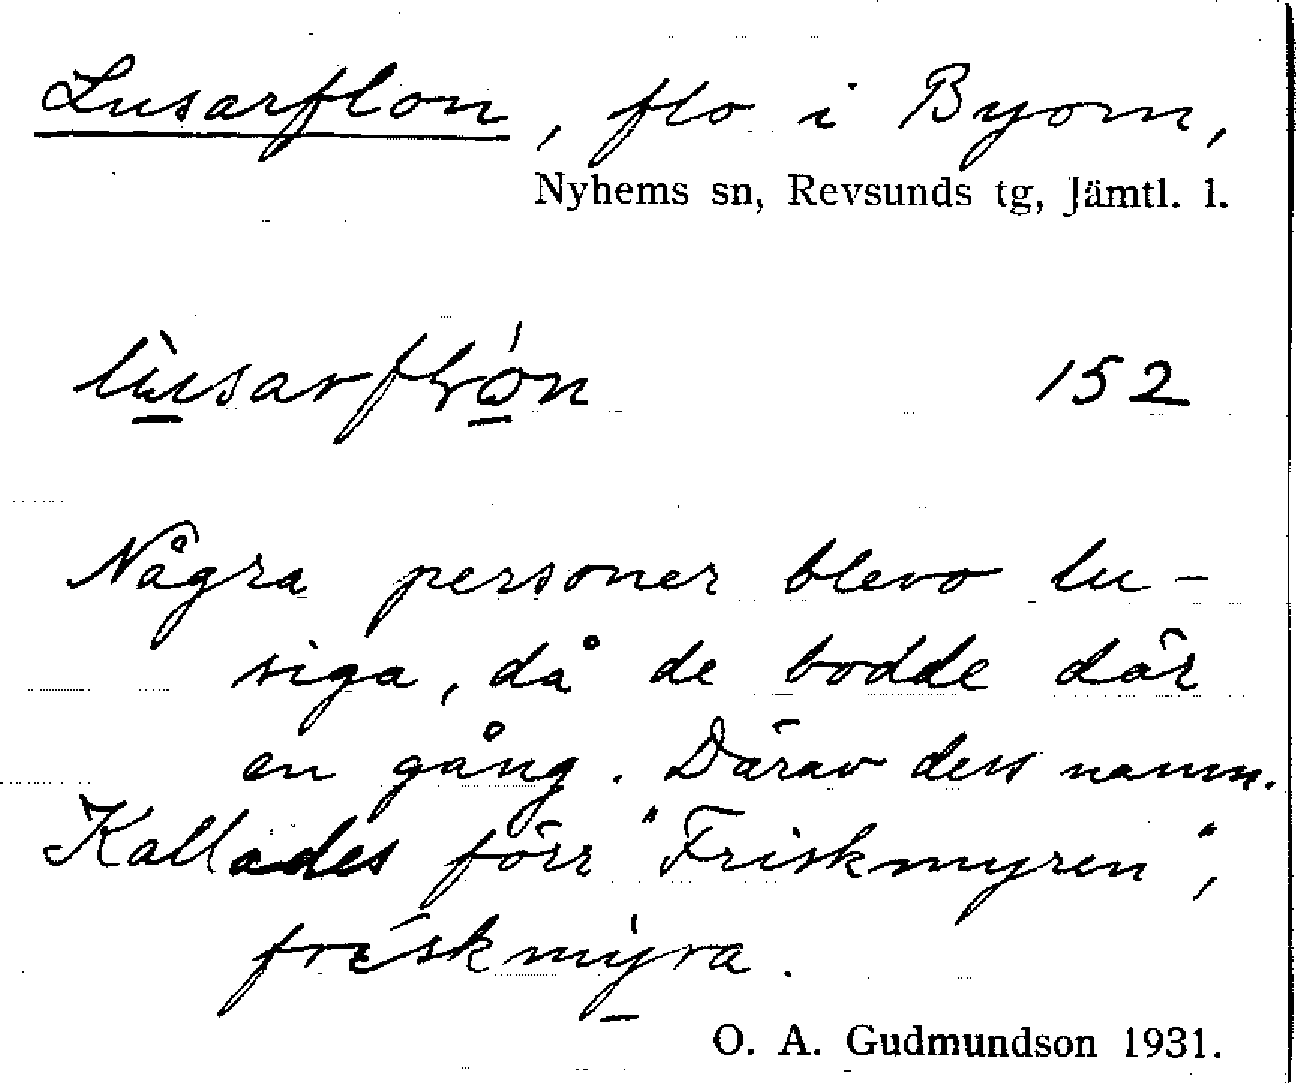 Lusarflon, flo i Byom,
Nyhems sn, Revsunds tg, Jämtl. l.
lùsarflón 152
Några personer blevo lu-
siga, då de bodde där
en gång. Därav dess namn.
Kallades förr "Friskmyren",
frískmýra.
O. A. Gudmundson 1931.